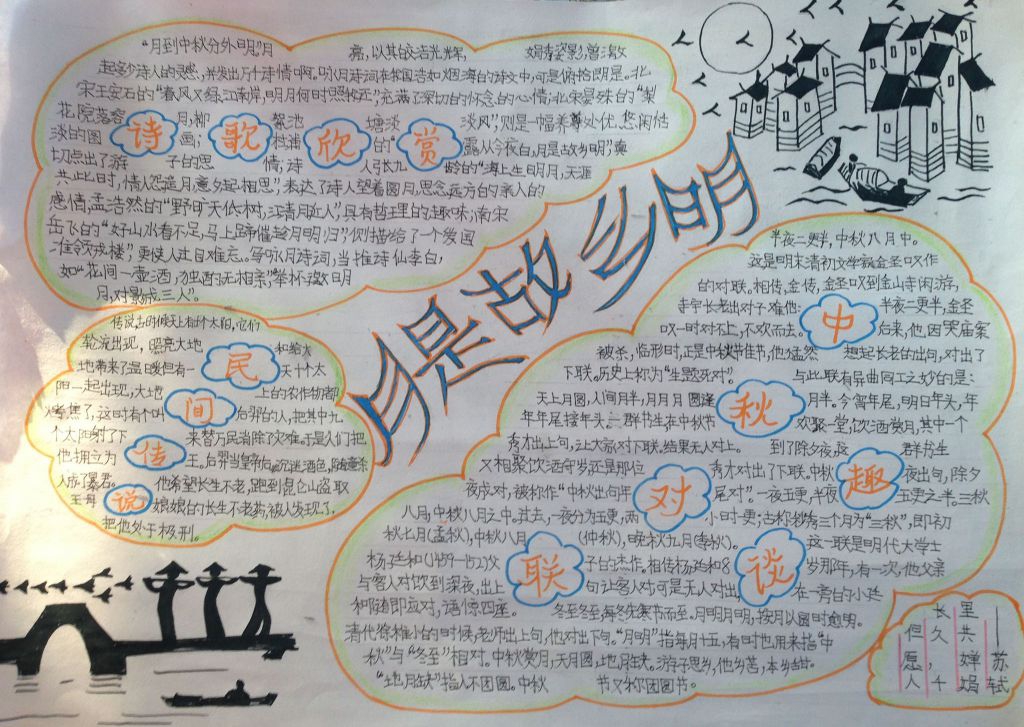 月是故乡明
诗歌欣赏
"月到中秋分外明"月亮,以其皎洁光辉,娟秀姿影,曾激
起多少诗人的灵感,并发出万千诗情啊。咏月诗词在我国浩如烟海的诗文中,可是俯拾即是。北
宋王安石的"春风又绿江南岸,明月何时照我还",充满了深切的怀念的心情;北宋晏殊的"梨
花院落溶溶月,柳絮池塘淡淡风",则是一幅养尊处优、悠闲恬
淡的图画;
露从今夜白,月是故乡明",真
切点出了游子的思情;诗人张九龄的"海上生明月,天涯
共此时,情人怨遥月,意夕起相思",表达了诗人望着圆月,思念远方的亲人的
感情,孟浩然的"野旷天低树,江清月近人",具有哲理的趣味;南宋
岳飞的"好山水看不足,马上蹄催趁月明归",侧描绘了一个爱国
准领戎楼",更使人过目难忘。写咏月诗词,当推诗仙李白,
如"花间一壶酒,独酌无相亲","举杯邀明
月,对影成三人"。
民间传说
传说古的候天上有十个太阳,它们
轮流出现,照亮大地和给大
地带来了温暖但有一天十个太
阳一起出现,大地上的农作物都
烤焦了,这时有个叫后羿的人,把其中九
个太阳射了下来替万民消除了灾难。于是人们把
他拥立为王。后羿当皇帝后,沉迷酒色,随意杀
人成了暴君。他希望长生不老,跑到昆仑山盗取
王母娘娘的长生不老药,被人发现了,
把他处于极刑。
中秋对联趣谈
半夜二更半,中秋八月中。
这是明末清初文学家金圣叹作
的对联。相传,金传,金圣叹到金山寺闲游,
寺宁长老出对子难他:半夜二更半,金圣
叹一时对不上,不欢而去。后来,他因哭庙案
被杀,临刑时,正是中秋节佳节,他猛然想起长老的出句,对出了
下联。历史上称为"生题死对"。与此联有异曲同工之妙的是:
天上月圆,人间月半,月月月圆逢月半。今宵年尾,明日年头,年
年年尾接年头。二群书生在中秋节欢聚一堂,饮酒赏月,其中一个
秀才出上句,让大家对下联,结果无人对上。到了除夕夜,这群书生
又相聚饮酒守岁,还是那位秀才对出了下联。中秋夜出句,除夕
夜成对,被称作"中秋出句年尾对"。一夜五更,半夜五更之半。三秋
八月,中秋八月之中。过去,一夜分为五更,两小时一更;古称秋季三个月为"三秋",即初
秋七月(孟秋),中秋八月(仲秋),晚秋九月(季秋)。这一联是明代大学士
杨廷和(1459-1529)父子的杰作。相传杨廷和8岁那年,有一次,他父亲
与客人对饮到深夜,出上句让客人对,可是无人对出,在一旁的小廷
和随即应对,语惊四座。冬至冬至,每冬先寒节而至。月明月明,按月以圆时逾明。
清代徐稚小的时候,老师出上句,他对出下句。"月明"指每月十五,有时也用来指"中
秋"与"冬至"相对。中秋赏月,天月圆,地月缺。游子思乡,他乡苦,本乡甜。
"地月缺"指人不团圆。中秋节又称团圆节。
但愿人长久,千里共婵娟
——苏轼